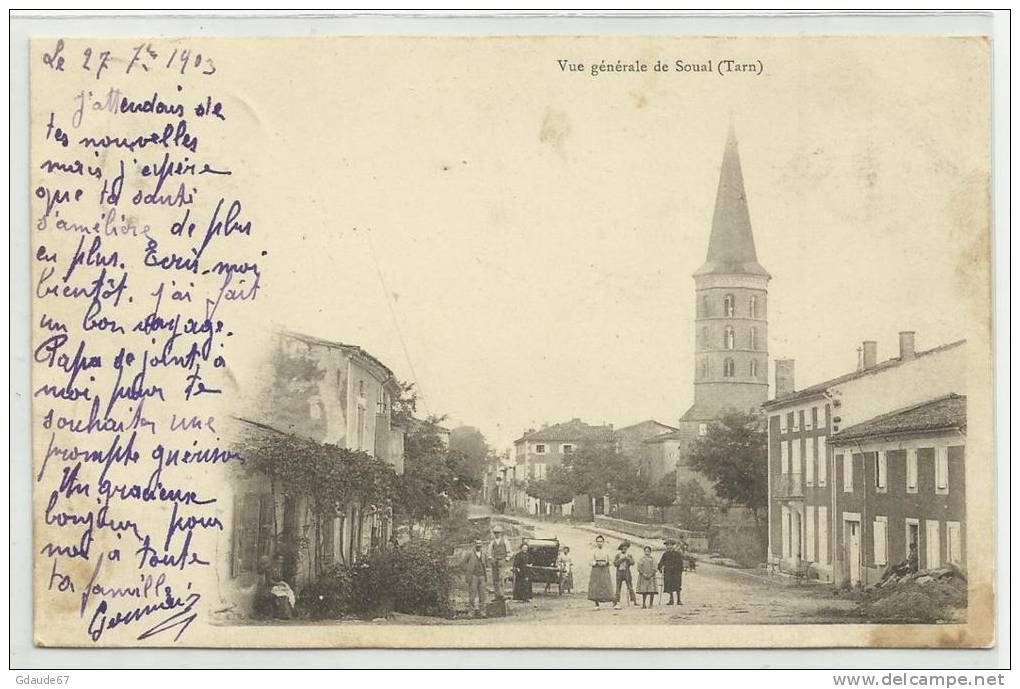 Vue générale de Soual (Tarn)
Le 27 7bre 1903
J'attendais de
tes nouvelles
mais j'espère
que ta santé
s'améliore de plus
en plus. Ecris-moi
bientôt, j'ai fait
un bon voyage.
Papa se joint à
moi pour te
souhaiter une
prompte guérison
Un gracieux
bonjour pour
moi à toute
ta famille
Gdaude67
www.delcampe.net